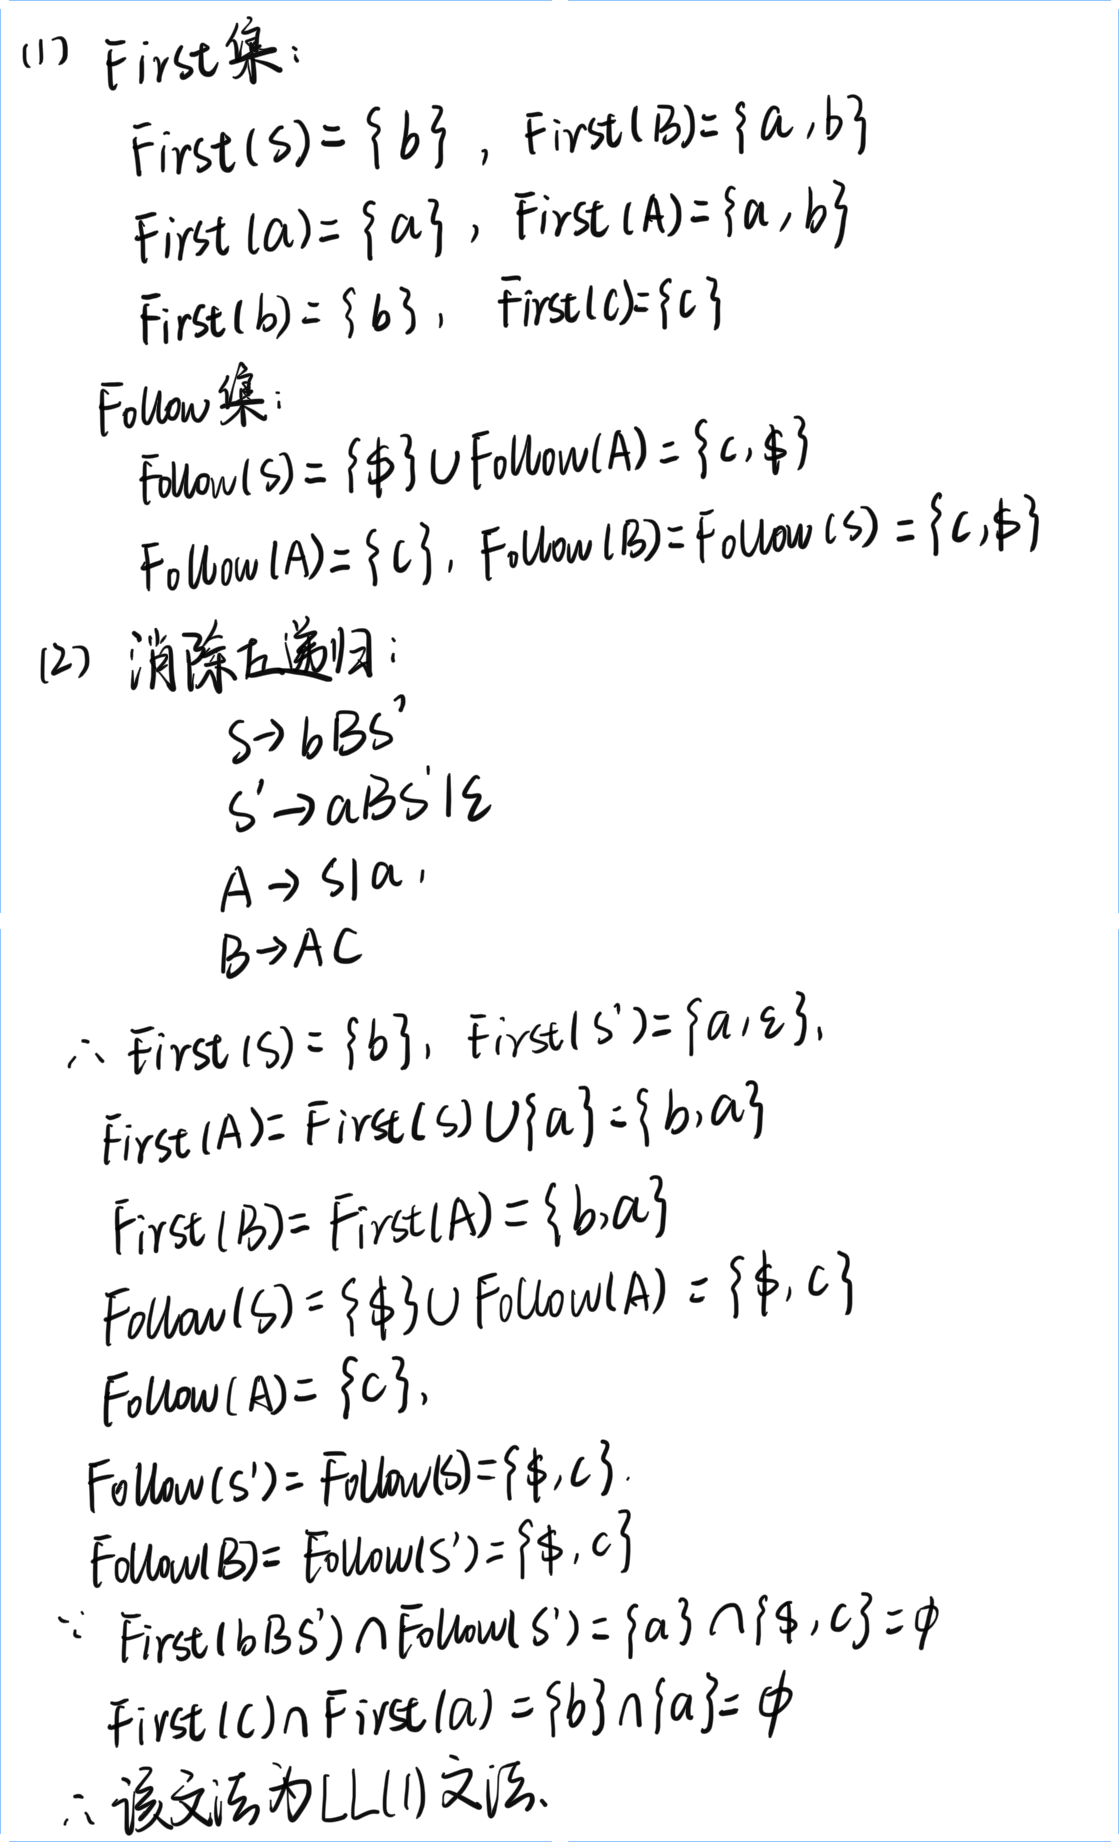 (1) First集:
First(S)={b}, First(B)={a,b}
First(a)={a}, First(A)={a,b}
First(b)={b}, First(c)={c}
Follow集:
Follow(S)={$}∪Follow(A)={c,$}
Follow(A)={c}, Follow(B)=Follow(S)={c,$}
(2) 消除左递归:
S→bBS'
S'→aBS'|ε
A→S|a,
B→AC
∴ First(S)={b}, First(S')={a,ε},
First(A)=First(S)∪{a}={b,a}
First(B)=First(A)={b,a}
Follow(S)={$}∪Follow(A)={$,c}
Follow(A)={c},
Follow(S')=Follow(S)={$,c}.
Follow(B)=Follow(S')={$,c}
∵ First(bBS')∩Follow(S')={a}∩{$,c}=ϕ
First(c)∩First(a)={b}∩{a}=ϕ
∴ 该文法为LL(1)文法.